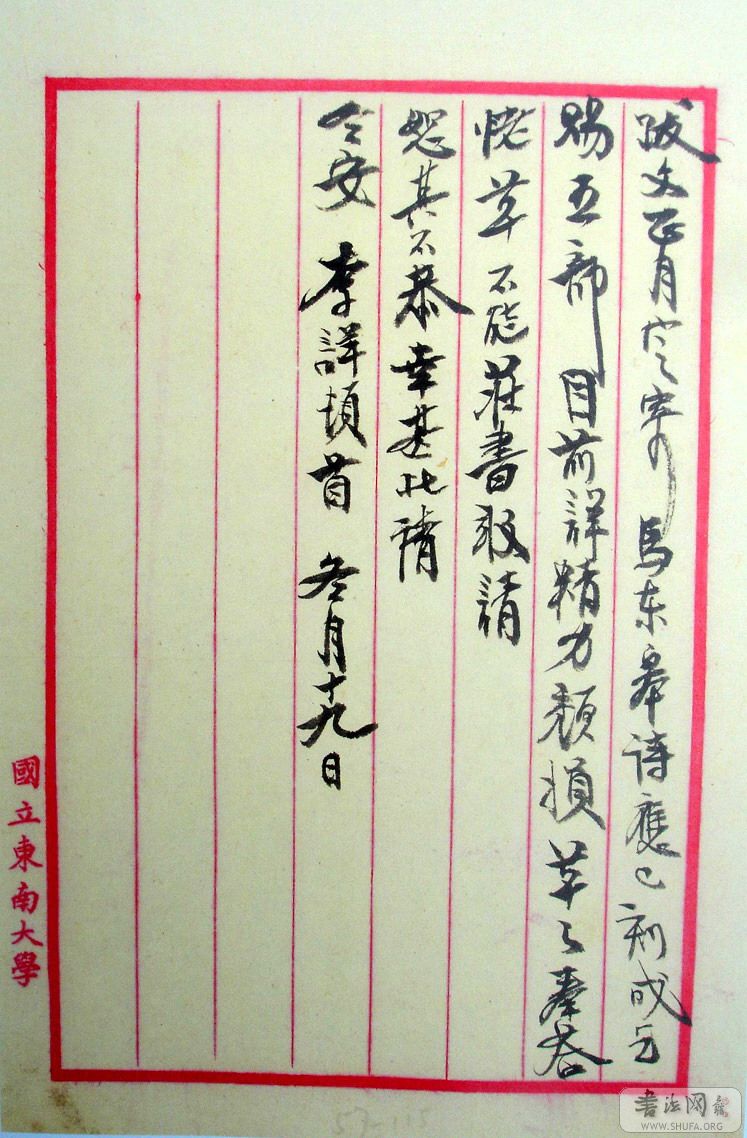 跋文正月定寄 馬东皋诗應已刻成乞
賜五部目前詳精力頹損草々奉答
恅草不能莊書敬請
恕其不恭幸甚此請
台安 李詳頓首 冬月十九日
國立東南大學
書法网
WWW.SHUFA.ORG